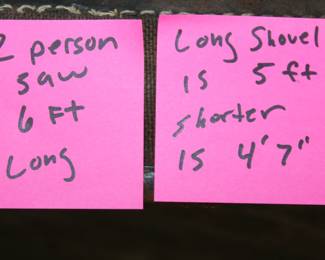 2 person
saw
6 Ft
Long
Long Shovel
is 5 ft
shorter
is 4' 7"